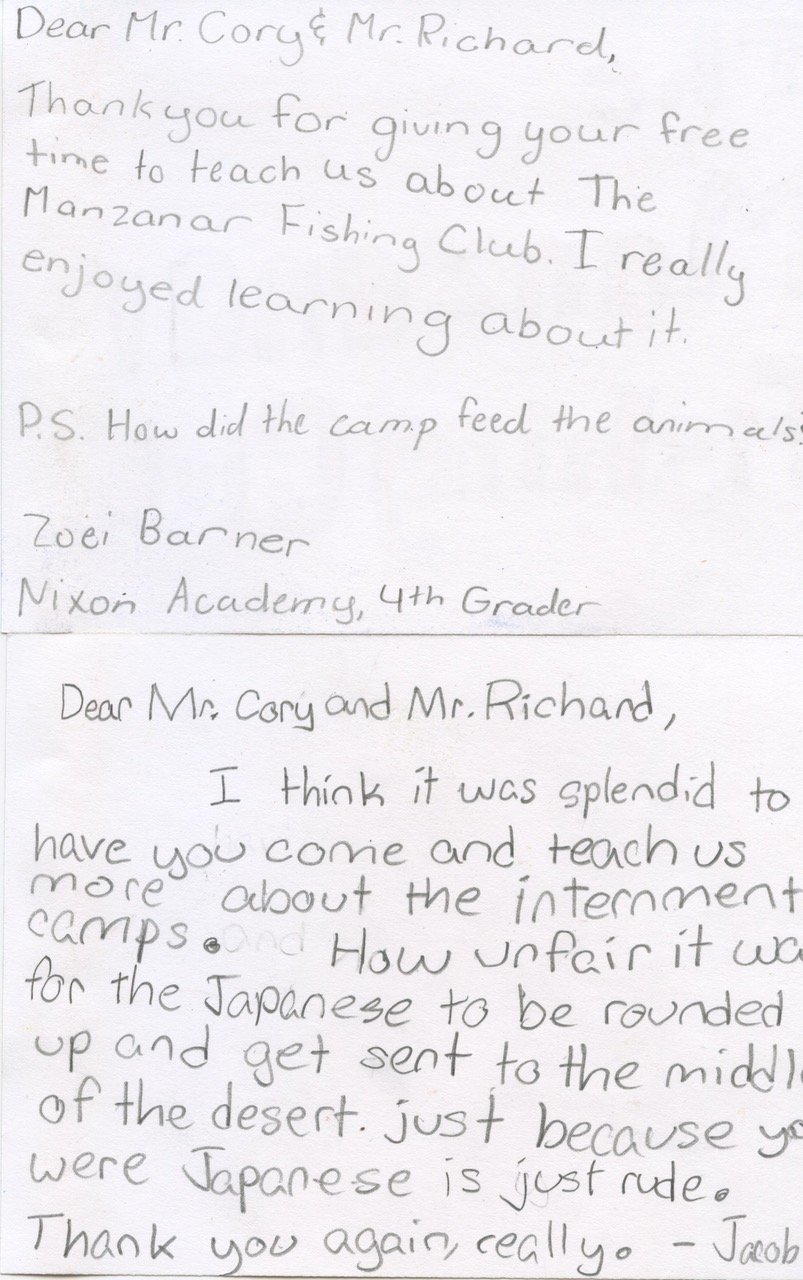 Dear Mr. Cory & Mr. Richard,
Thank you for giving your free
time to teach us about The
Manzanar Fishing Club. I really
enjoyed learning about it.
P.S. How did the camp feed the animals?
Zoei Barner
Nixon Academy, 4th Grader
Dear Mr. Cory and Mr. Richard,
I think it was splendid to
have you come and teach us
more about the internment
camps. How unfair it wa
for the Japanese to be rounded
up and get sent to the middl
of the desert. just because yo
were Japanese is just rude.
Thank you again, really. - Jacob